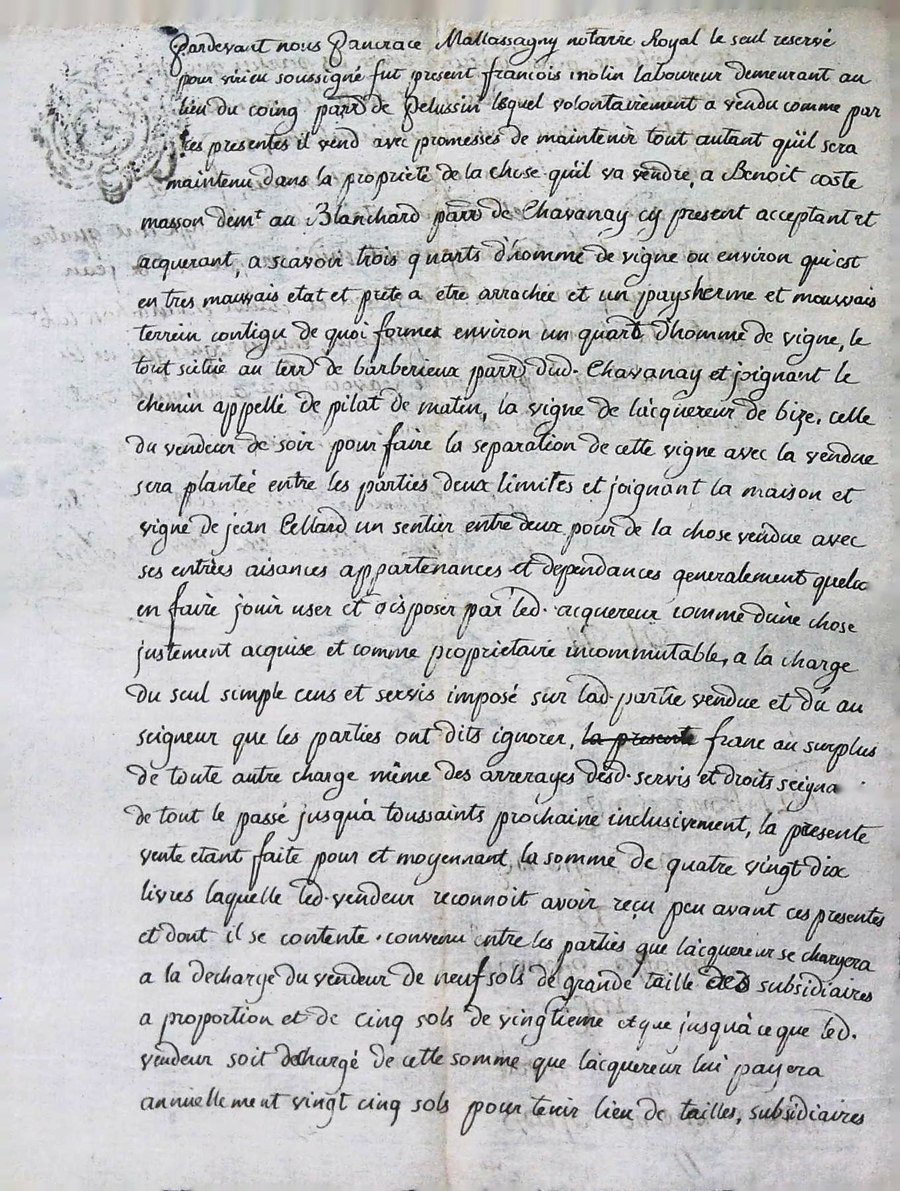 Pardevant nous Pancrace Mallassagny notaire Royal le seul reservé
pour virieu soussigné fut present françois molin laboureur demeurant au
lieu du coing parr. de Pelussin lequel volontairement a vendu comme par
ces presentes il vend avec promesses de maintenir tout autant qu'il sera
maintenu dans la proprieté de la chose qu'il va vendre, a Benoit coste
masson demt au Blanchard parr. de Chavanay cy present acceptant et
acquerant, a scavoir trois quarts d'homme de vigne ou environ qui est
en tres mauvais etat et prete a etre arrachée et un pays herme et mauvais
terrein contigu de quoi former environ un quart d'homme de vigne, le
tout scitué au terr. de barberieux parr. dud. Chavanay et joignant le
chemin appellé de pilat de matin, la vigne de l'acquereur de bize, celle
du vendeur de soir pour faire la separation de cette vigne avec la vendue
sera plantée entre les parties deux limites et joignant la maison et
vigne de jean Cellard un sentier entre deux, pour de la chose vendue avec
ses entrées aisances appartenances et dependances generalement quelc
en faire jouir user et disposer par led. acquereur comme d'une chose
justement acquise et comme proprietaire incommutable, a la charge
du seul simple cens et servis imposé sur lad. partie vendue et dû au
seigneur que les parties ont dits ignorer, la presente franc au surplus
de toute autre charge même des arrerages desd. servis et droits seigna
de tout le passé jusqu'à toussaints prochaine inclusivement, la presente
vente etant faite pour et moyennant la somme de quatre vingt dix
livres laquelle led. vendeur reconnoit avoir reçu peu avant ces presentes
et dont il se contente. convenu entre les parties que l'acquereur se chargera
a la decharge du vendeur de neuf sols de grande taille des subsidiaires
a proportion et de cinq sols de vingtieme et que jusqu'à ce que led.
vendeur soit dechargé de cette somme que l'acquereur lui payera
annuellement vingt cinq sols pour tenir lieu de tailles, subsidiaires